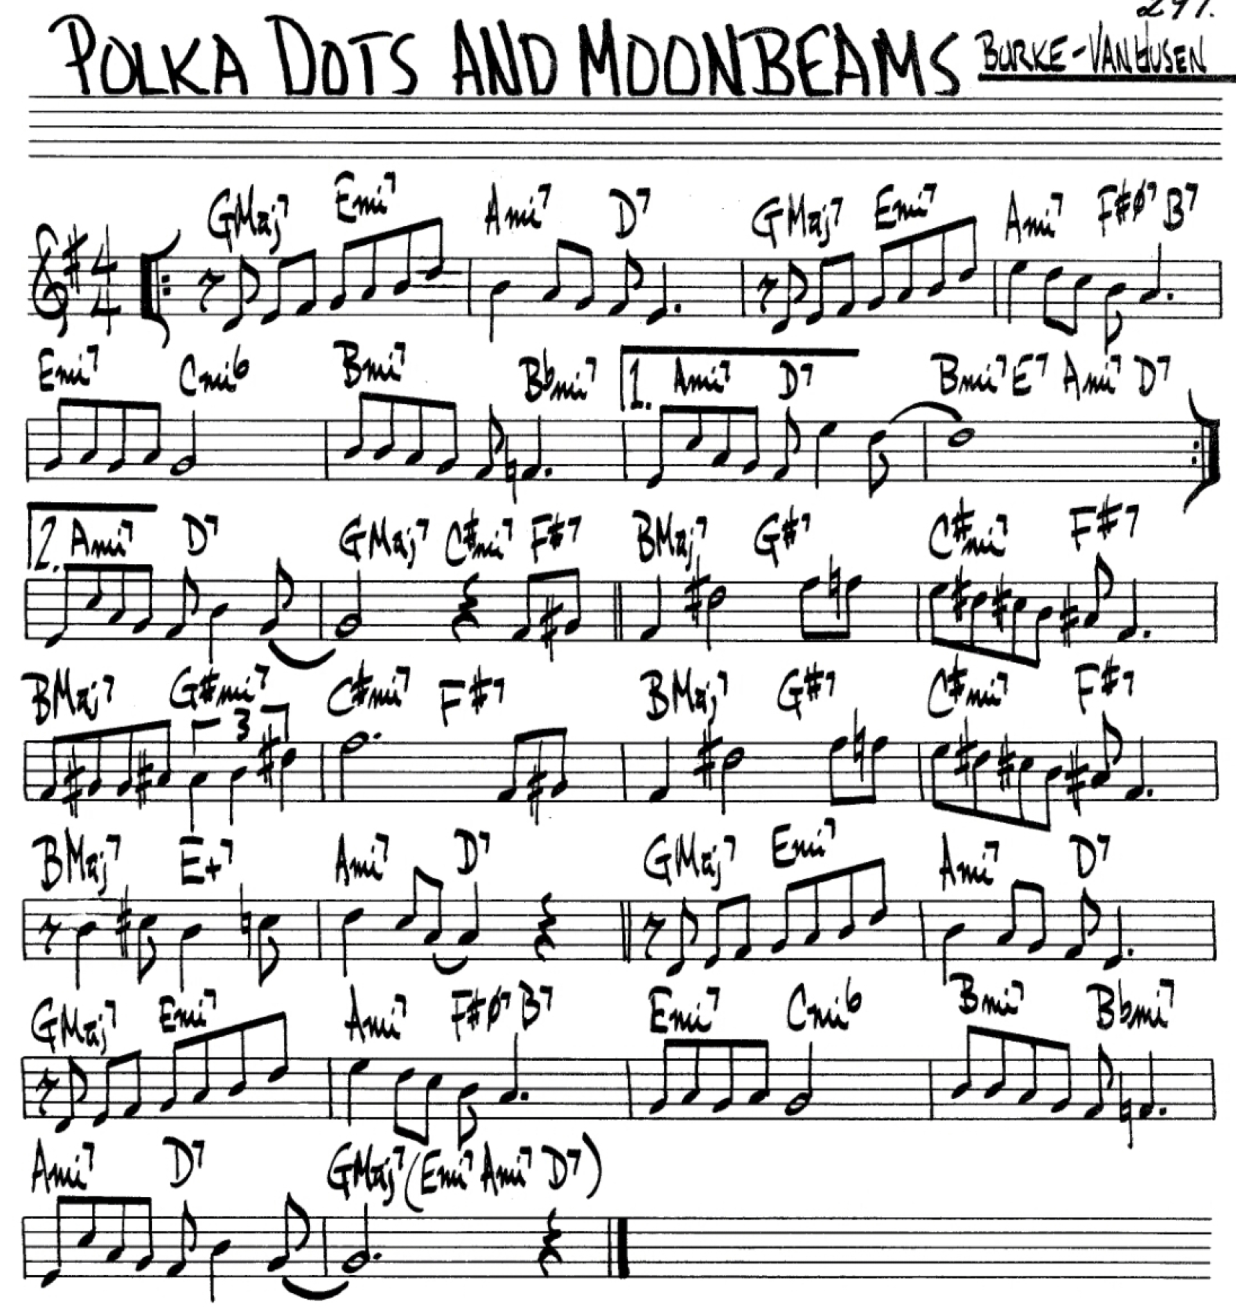 297.
POLKA DOTS AND MOONBEAMS BURKE-VANHUSEN
GMaj7 Emi7 Ami7 D7 GMaj7 Emi7 Ami7 F#ø7 B7
4
4
Emi7 Cmi6 Bmi7 Bbmi7 1. Ami7 D7 Bmi7 E7 Ami7 D7
2. Ami7 D7 GMaj7 C#mi7 F#7 BMaj7 G#7 C#mi7 F#7
BMaj7 G#mi7 C#mi7 F#7 BMaj7 G#7 C#mi7 F#7
3
BMaj7 E+7 Ami7 D7 GMaj7 Emi7 Ami7 D7
GMaj7 Emi7 Ami7 F#ø7 B7 Emi7 Cmi6 Bmi7 Bbmi7
Ami7 D7 GMaj7 (Emi7 Ami7 D7)